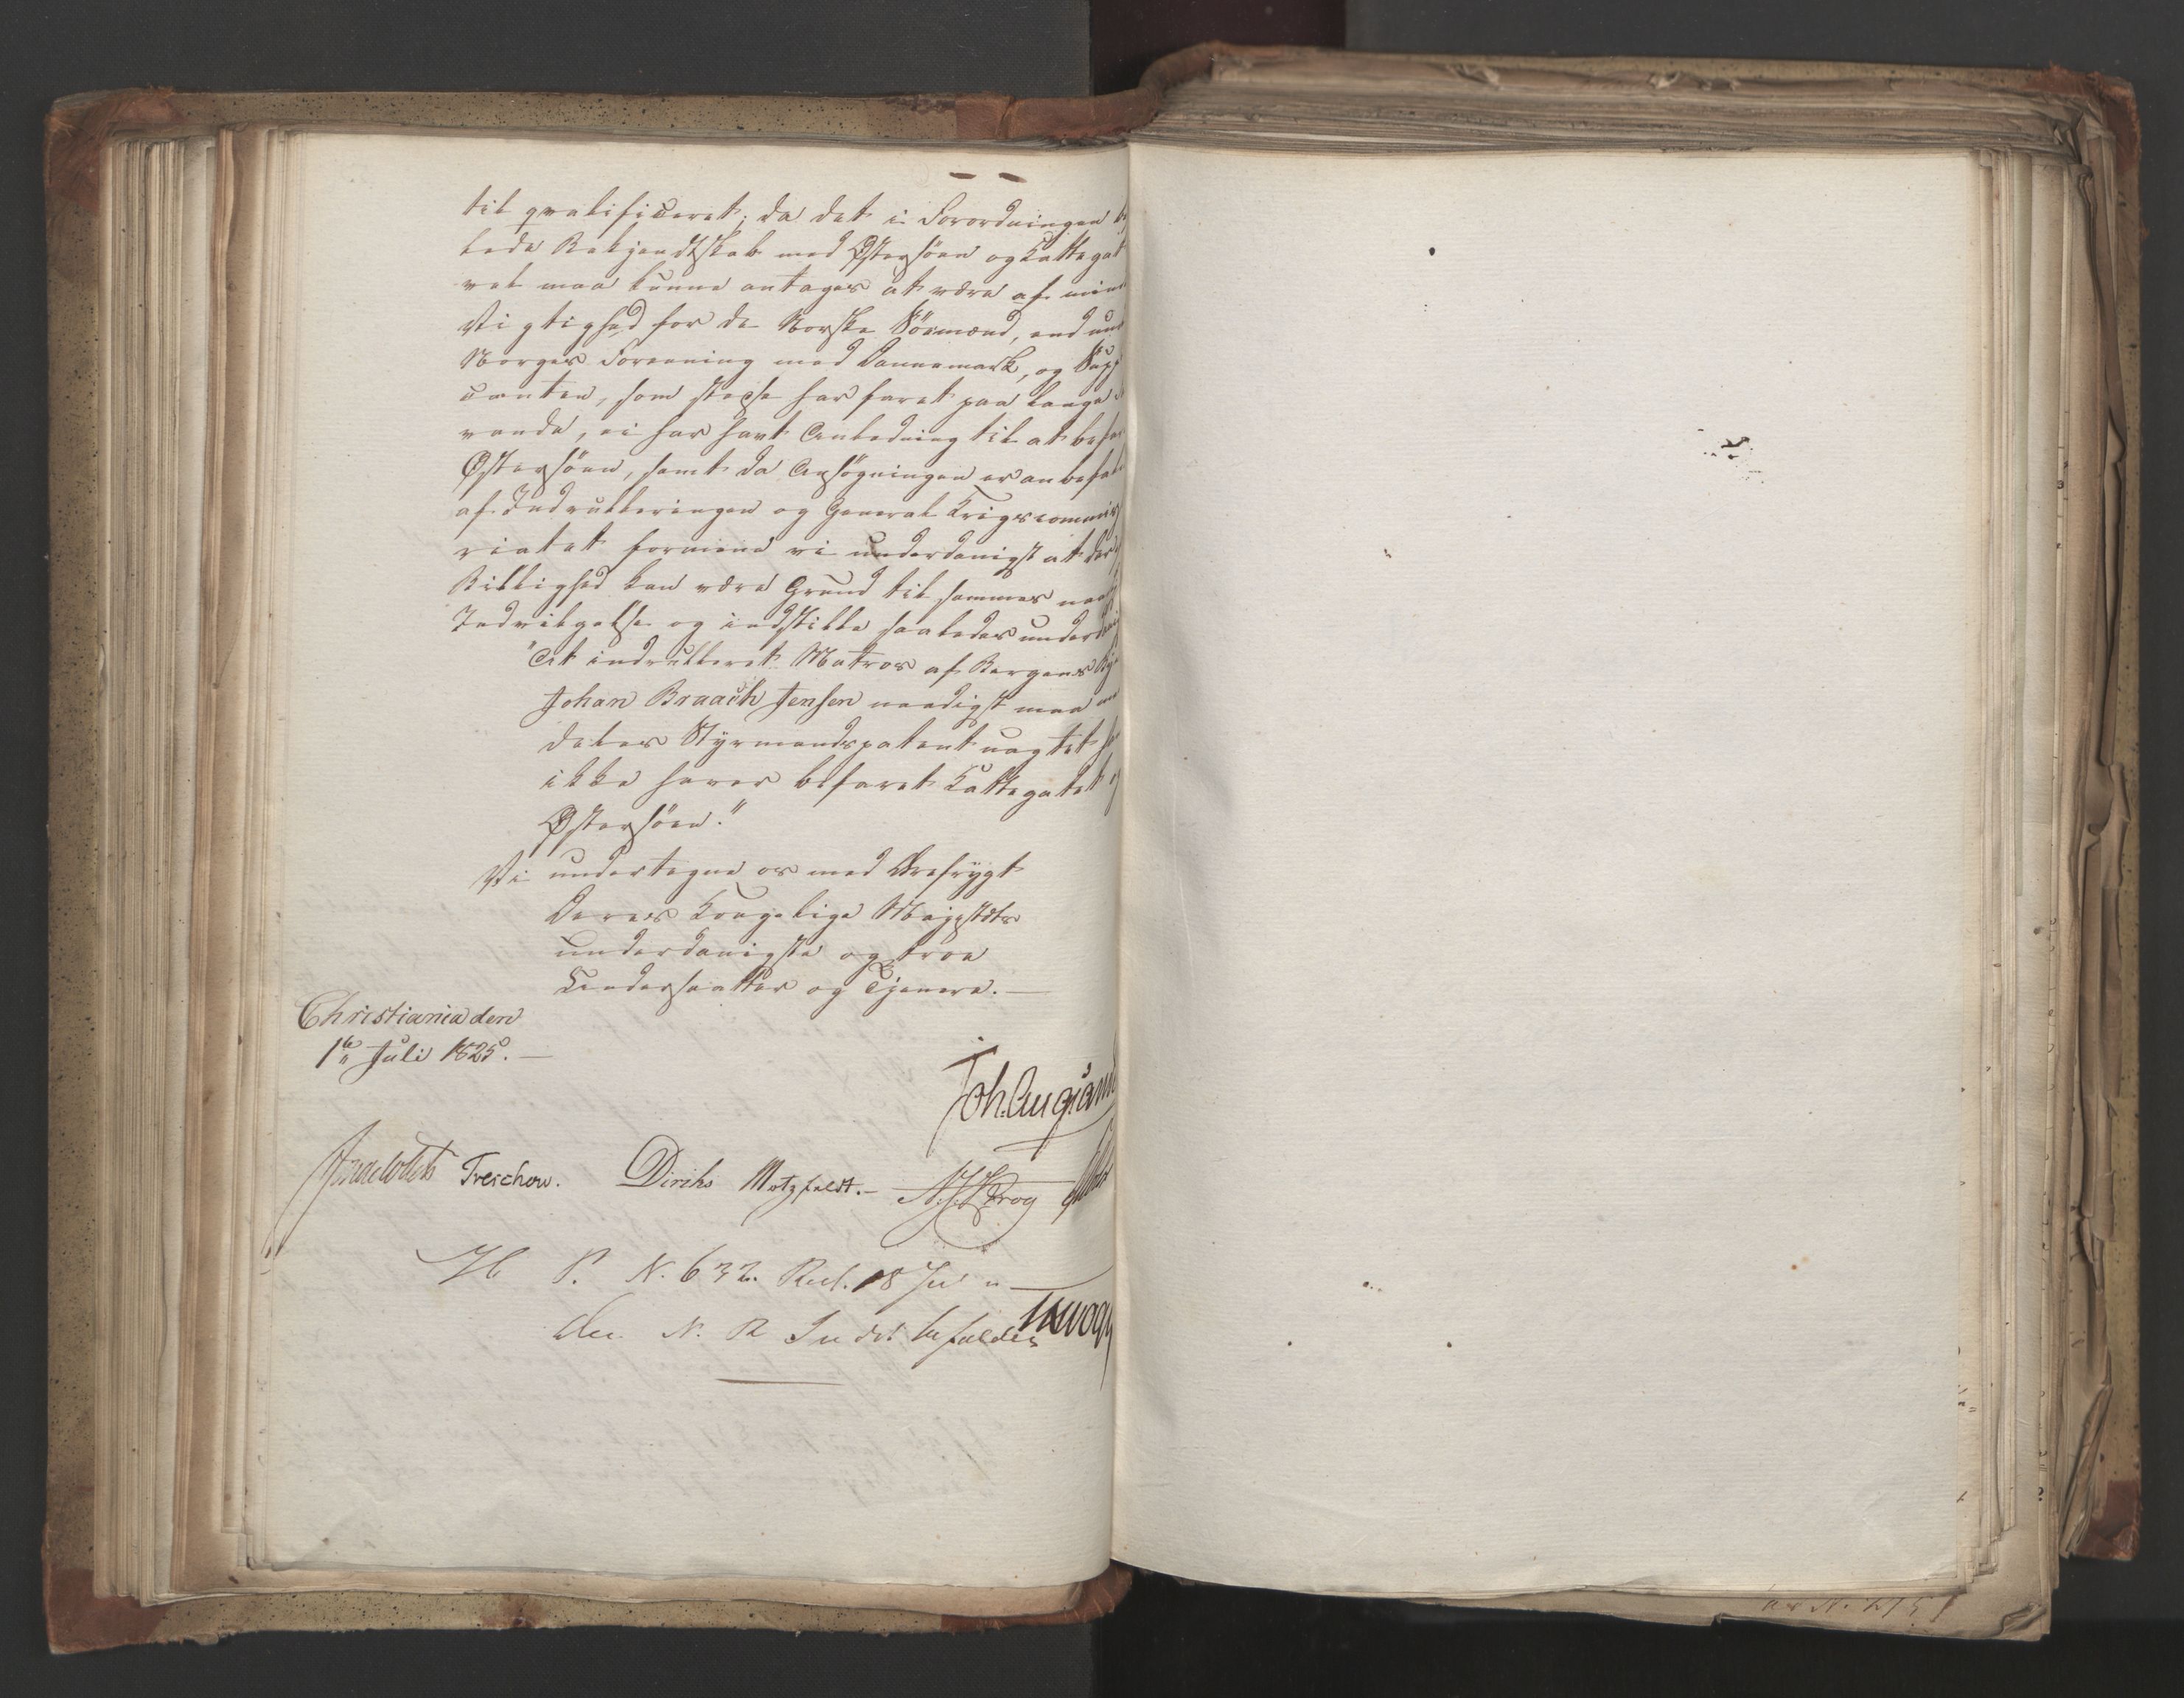 til qvalificeret; da det i Forordningen
lede Bekjendtskab med Østersöen og Kattegat
vel maa kunne antages at være af min
Vigtighed for de Norske Sömænd, end un
Norges Forening med Dannemark, og Supp
canten, som stedse har faret paa lange
, ei har havt Anledning til at befa
Østersöen, samt da Ansögningen er anbefal
af Indrulleringen og General Krigscommis
riatet formene vi underdanigst at der
Billighed kan være Grund til sammes naad
Indvilgelse og indstille saaledes underdani
"At indrulleret Matros af Bergens Bye
Johan Braach Jensen naadigst maa me
deles Styrmandspatent uagtet han
ikke haver befaret Kattegatet og
Østersöen."
Vi undertegne os med Ærefrygt
Deres Kongelige Majestæts
underdanigste og troe
Undersaatter og Tjenere.—
Christiania den
1ste Juli 1825.—
Joh. Aug. Sand
Treschow. Diriks Motzfeldt.— Krog
H P. N. 632. Res. 18 Jul
N. R Ind befalder